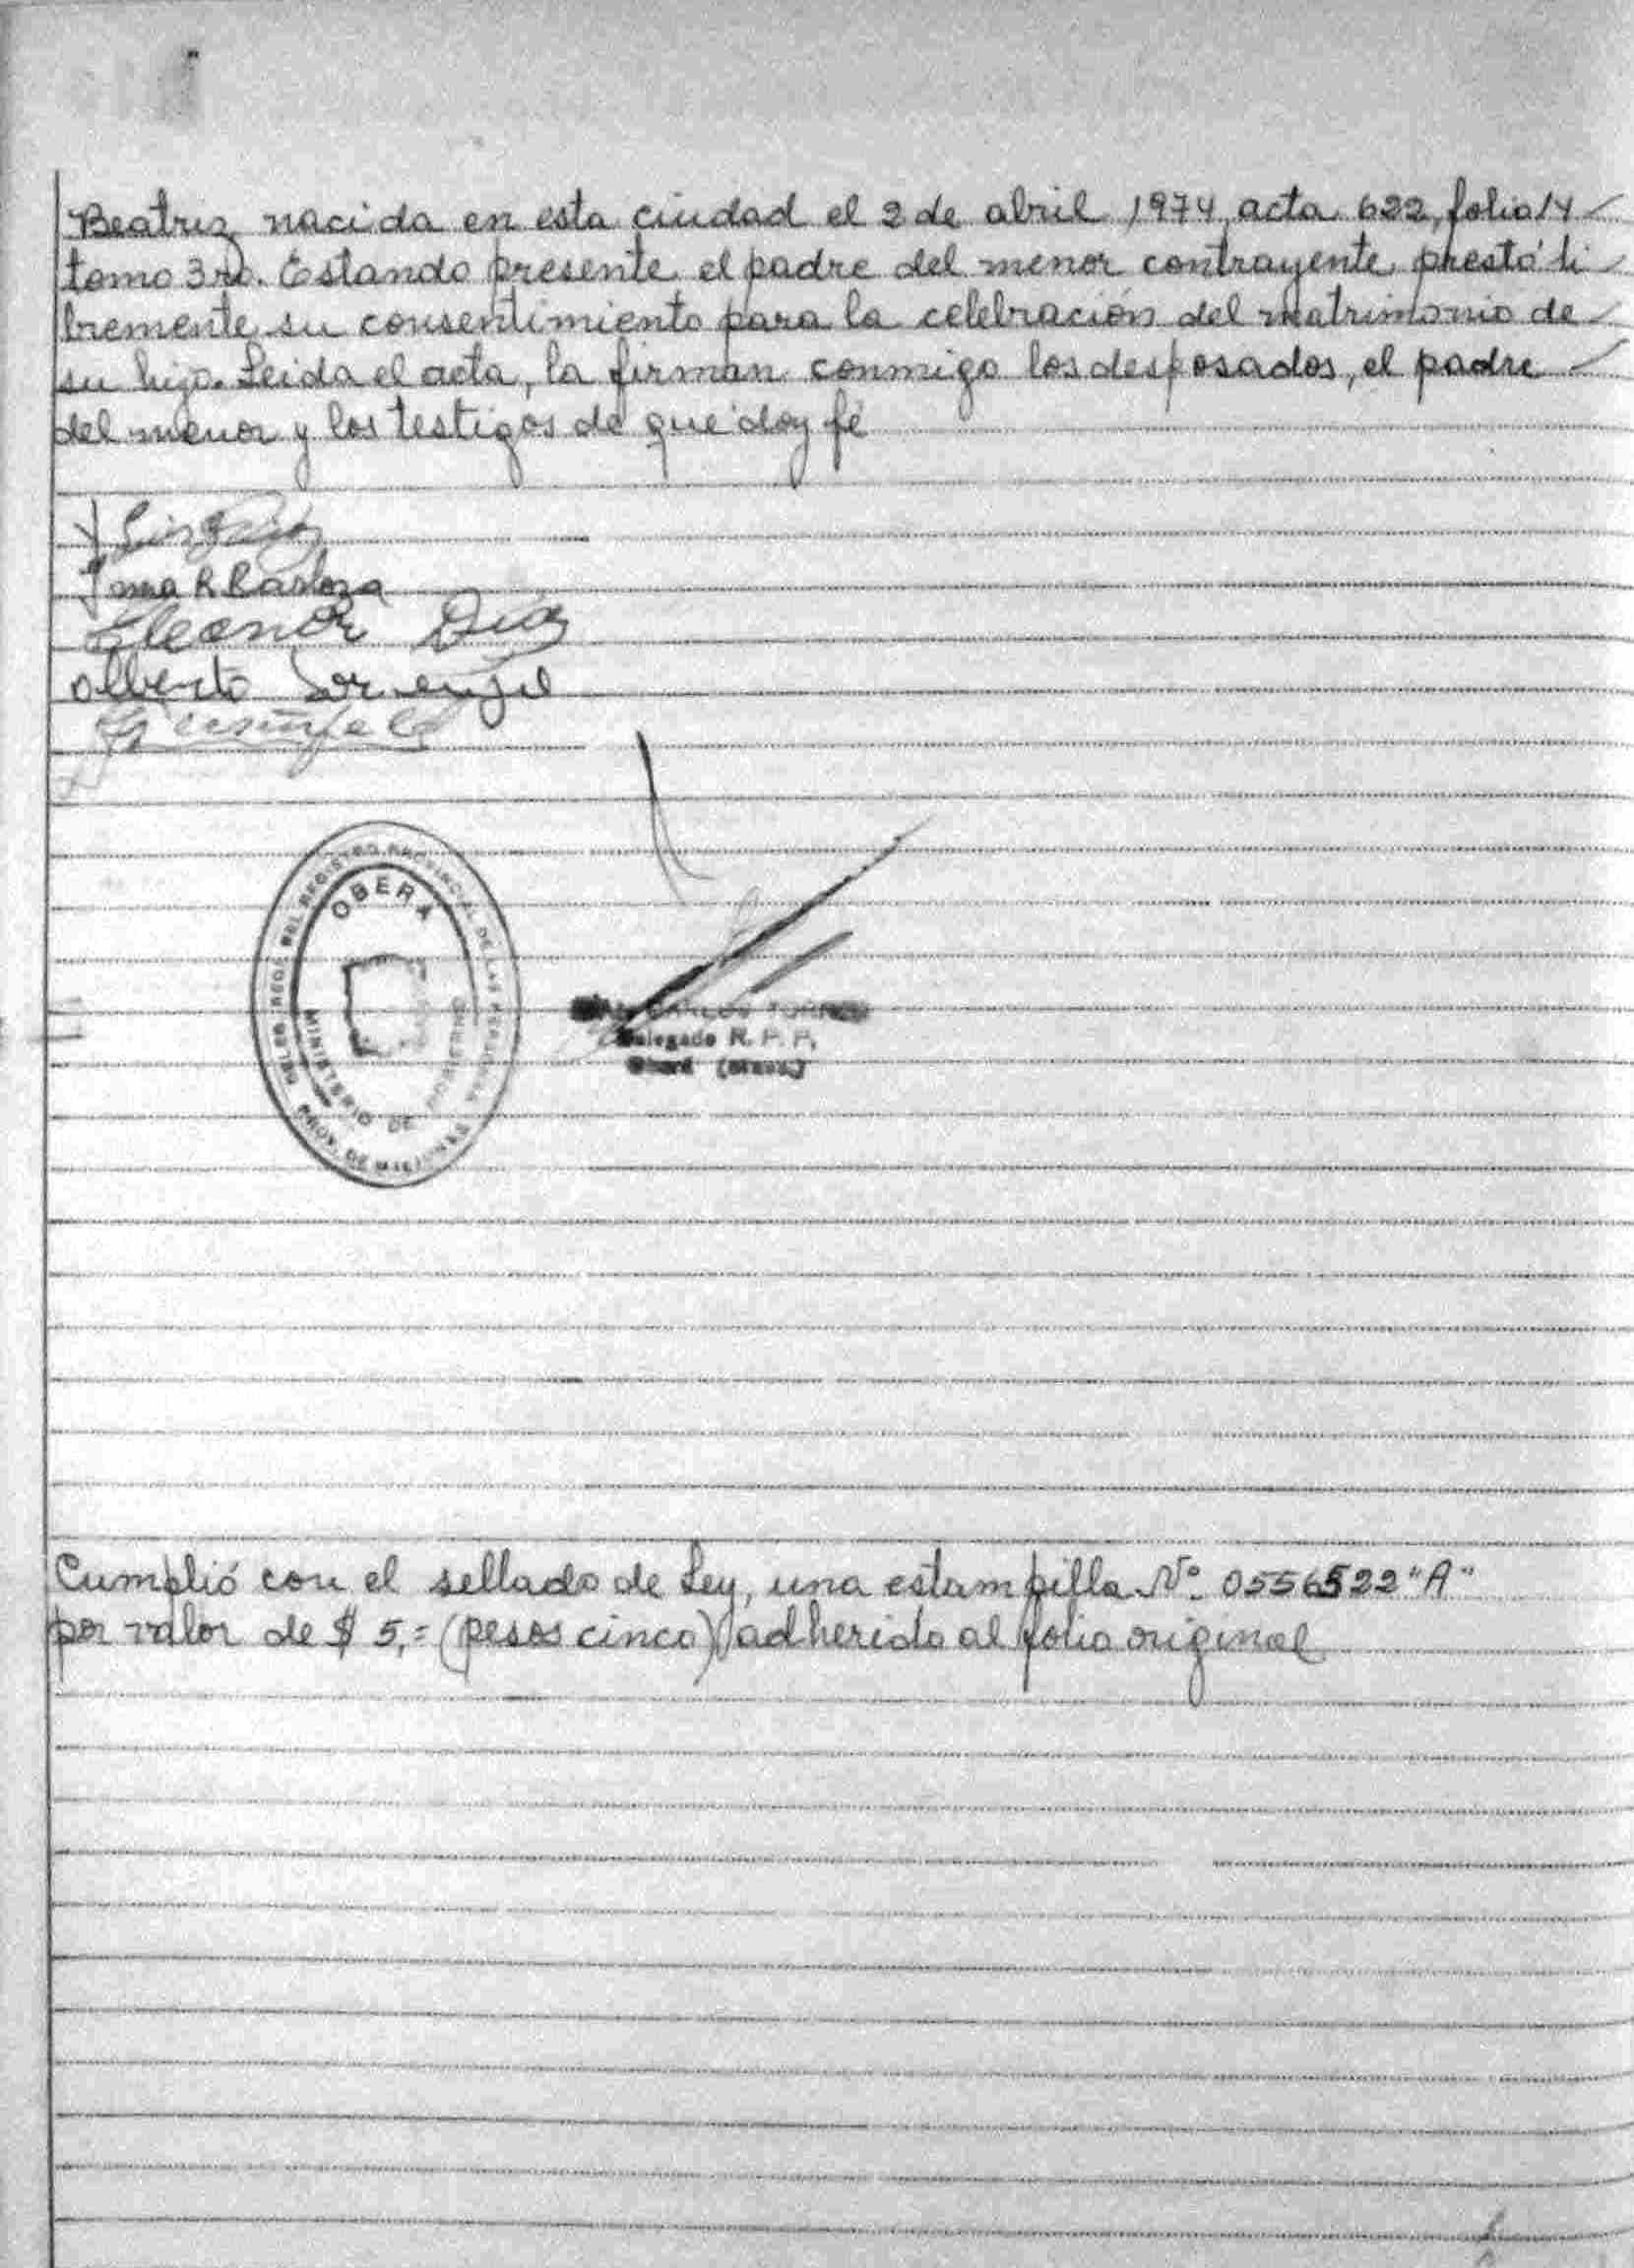 Beatriz nacida en esta ciudad el 2 de abril 1974, acta 622, folio 14
tomo 3ro. Estando presente el padre del menor contrayente prestó li
bremente su consentimiento para la celebración del matrimonio de
su hijo. Leida el acta, la firman conmigo los desposados, el padre
del menor y los testigos de que doy fé
Eleonor Diaz
Alberto
OBERA
DEL REGISTRO PROVINCIAL DE LAS PERSONAS
MINISTERIO DE GOBIERNO
PROV. DE MISIONES
CARLOS TORRES
Delegado R. P. P.
Oberá (Mnes.)
Cumplió con el sellado de Ley, una estampilla Nº 0556522 "A"
por valor de $ 5,= (pesos cinco) adherido al folio original